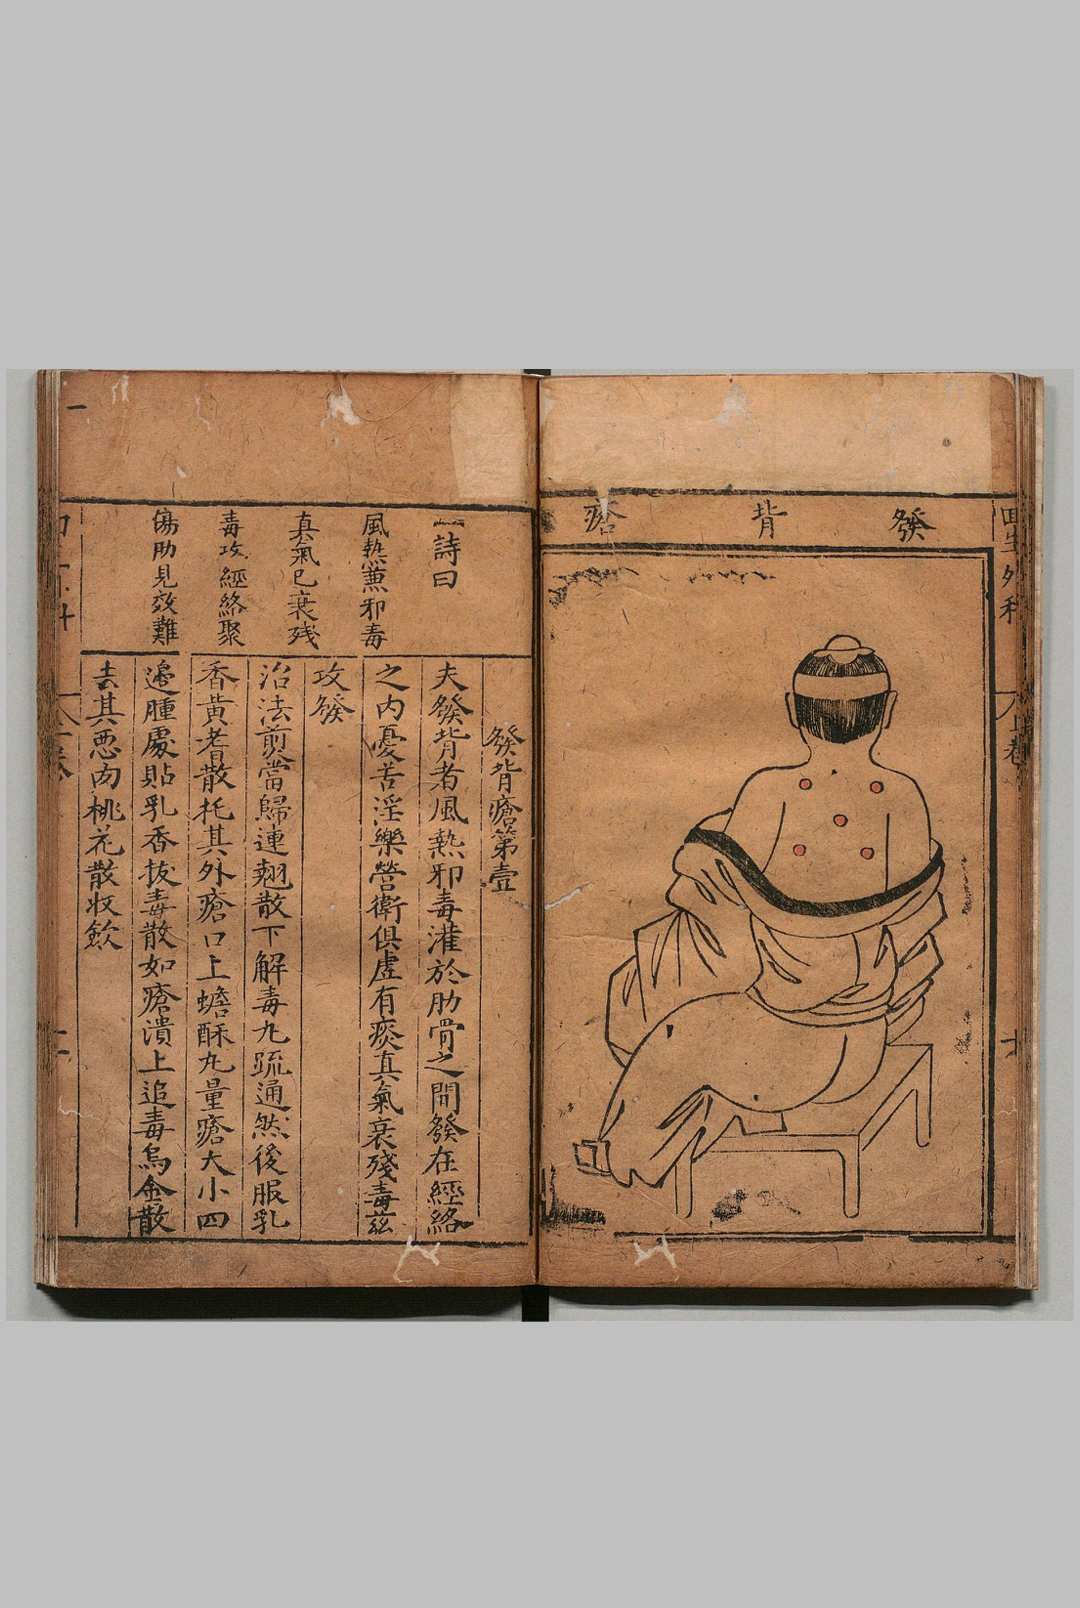 發背瘡
詩曰
風熱蕪邪毒
真氣已衰殘
毒攻經絡聚
傷肋見效難
發背瘡第壹
夫發背者風熱邪毒灌於肋骨之間發在經絡
之內憂苦淫樂營衛俱虛有痰真氣衰殘毒茲
攻發
治法煎當歸連翹散下解毒丸疏通然後服乳
香黄耆散托其外瘡口上蟾酥丸量瘡大小四
邊腫處貼乳香拔毒散如瘡潰上追毒烏金散
去其惡肉桃花散收歛